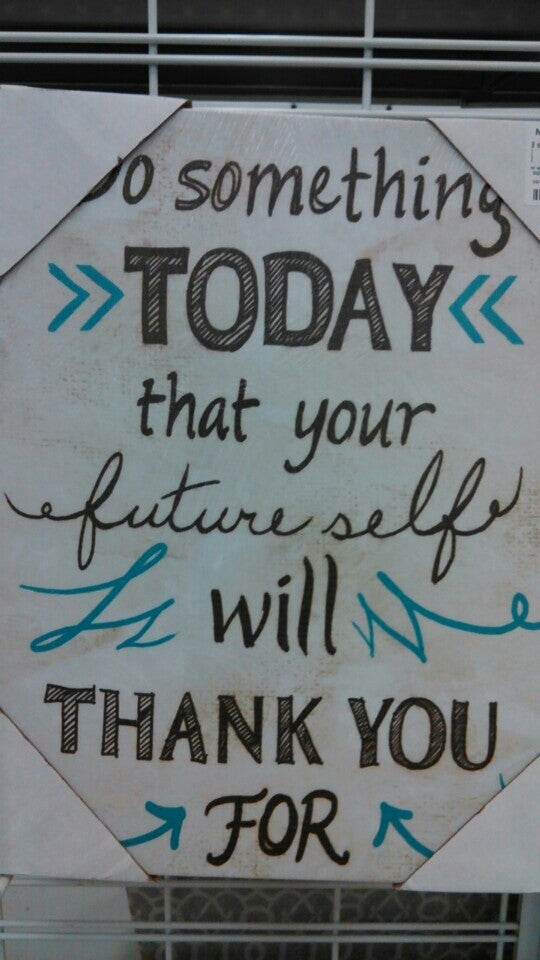 Do something
TODAY
that your
future self
will
THANK YOU
FOR